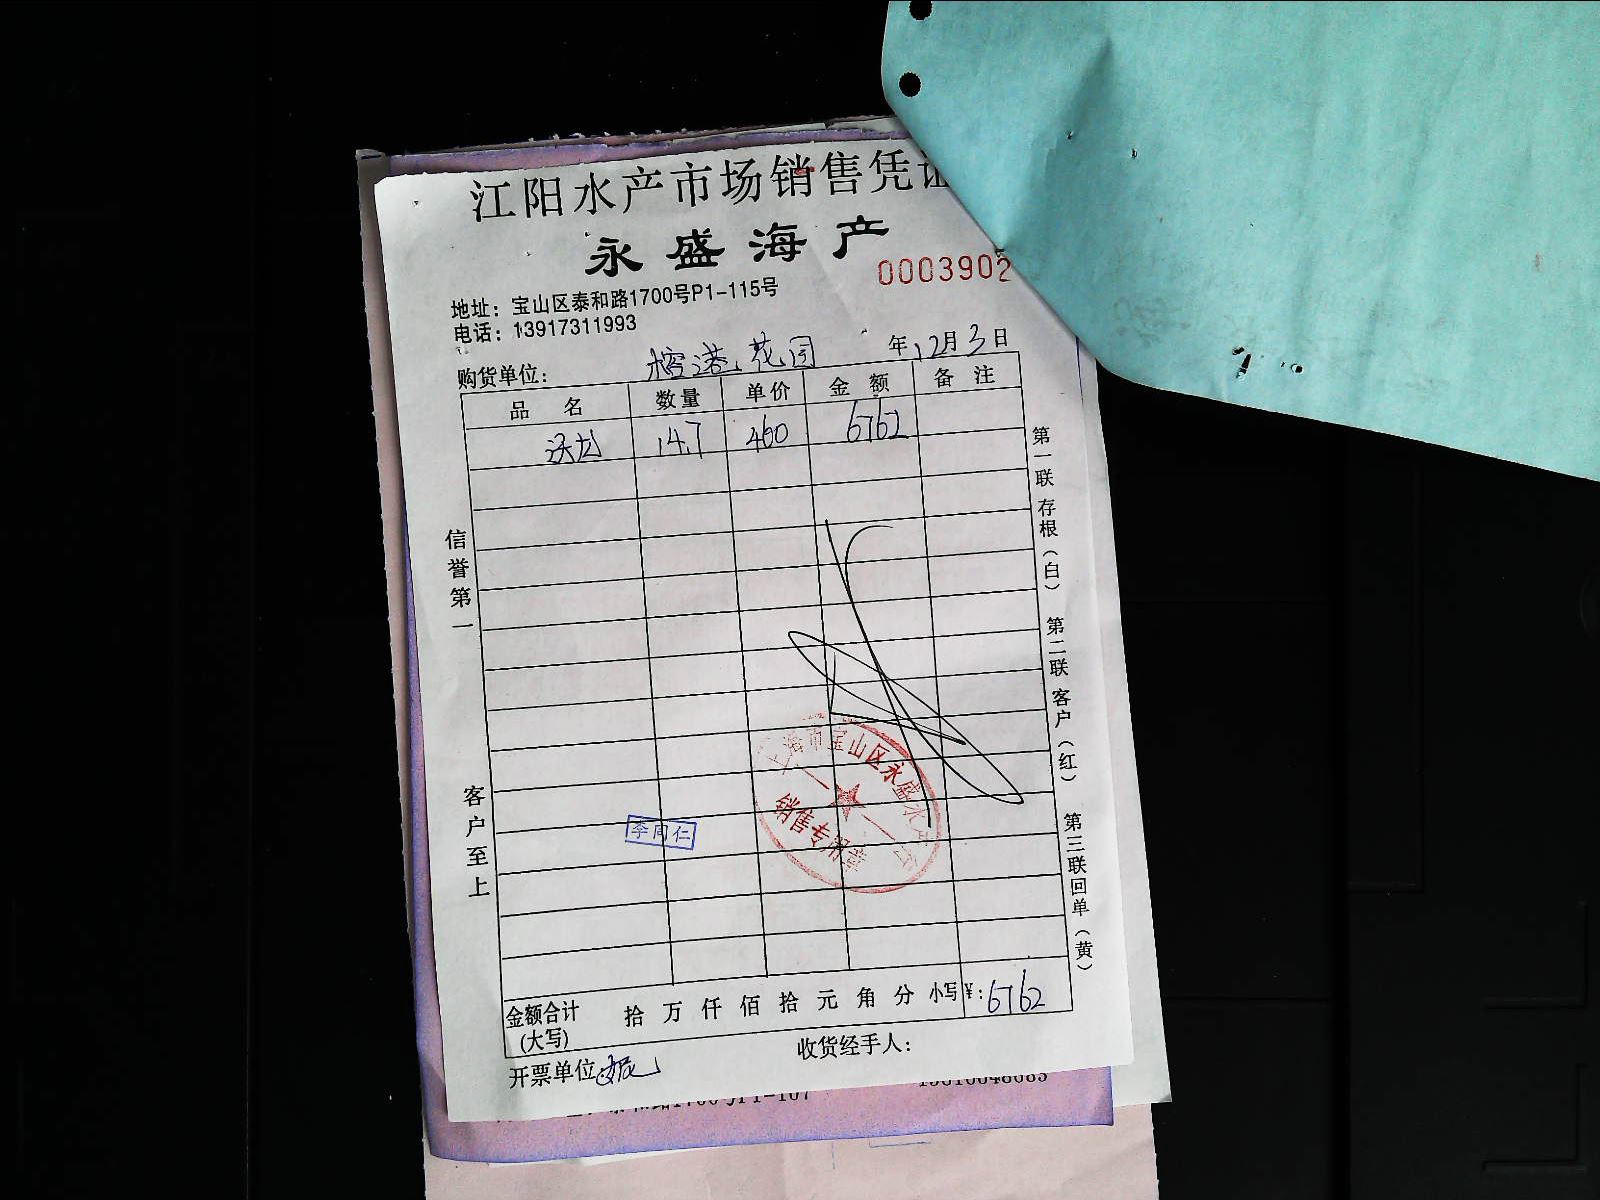 江阳水产市场销售凭证
永盛海产
0003902
地址：宝山区泰和路1700号P1-115号
电话：13917311993
购货单位：榕港花园 年12月3日
品名 数量 单价 金额 备注
沃龙 14.7 460 6762
信誉第一
客户至上
第一联存根（白） 第二联客户（红） 第三联回单（黄）
上海市宝山区永盛水产
销售专用章
李同仁
金额合计（大写） 拾万仟佰拾元角分 小写¥：6762
开票单位： 收货经手人：
泰和路1700号P1-107